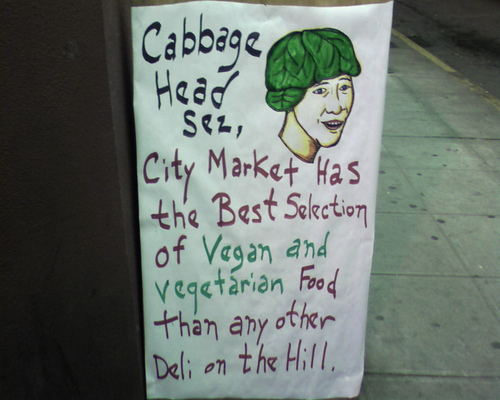 Cabbage
Head
Sez,
City Market Has
the Best Selection
of Vegan and
vegetarian Food
than any other
Deli on the Hill.